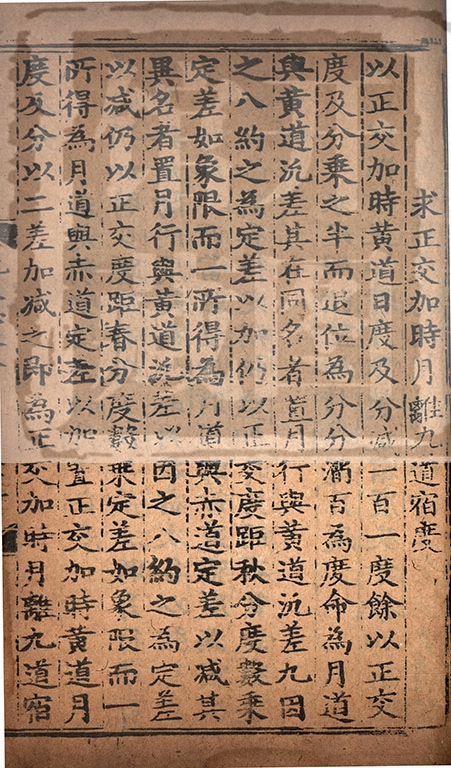 求正交加時月離九道宿度
以正交加時黃道日度及分減一百一度餘以正交
度及分乗之半而退位為分分滿百為度命為月道
與黃道汎差其在同名者置月行與黃道汎差九因
之八約之為定差以加仍以正交度距秋分度數乗
定差如象限而一所得為月道與赤道定差以減其
異名者置月行與黃道汎差因之八約之為定差
以減仍以正交度距春分度數乗定差如象限而一
所得為月道與赤道定差以加置正交加時黃道月
度及分以二差加減之即為正交加時月離九道宿